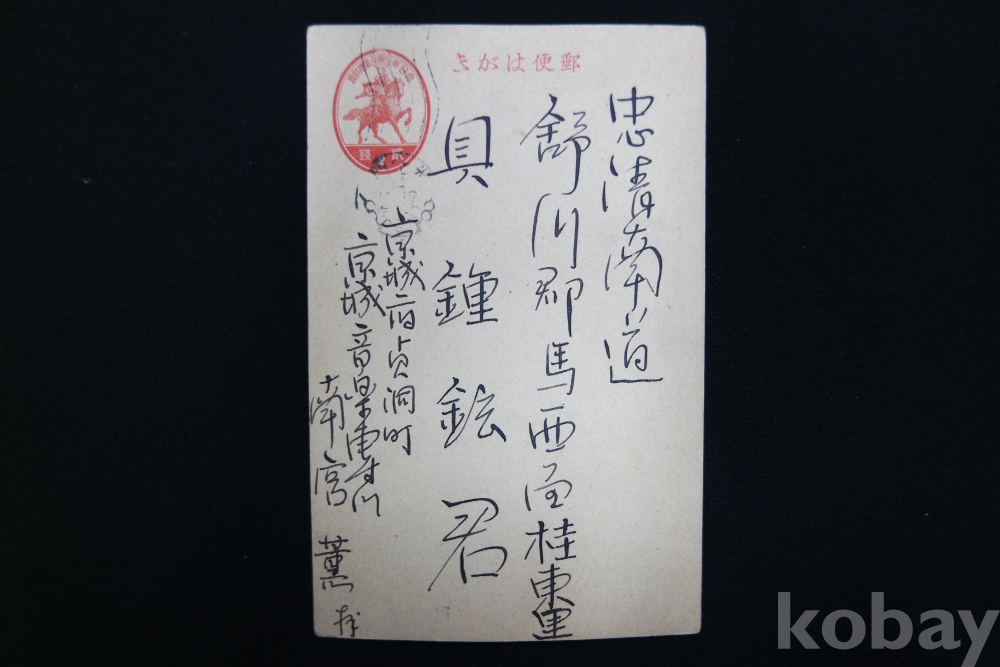 郵便はがき
忠淸南道
舒川郡馬西面桂東里
具鍾鉉君
京城府貞洞町
京城音楽専門
南宮薫拝
kobay